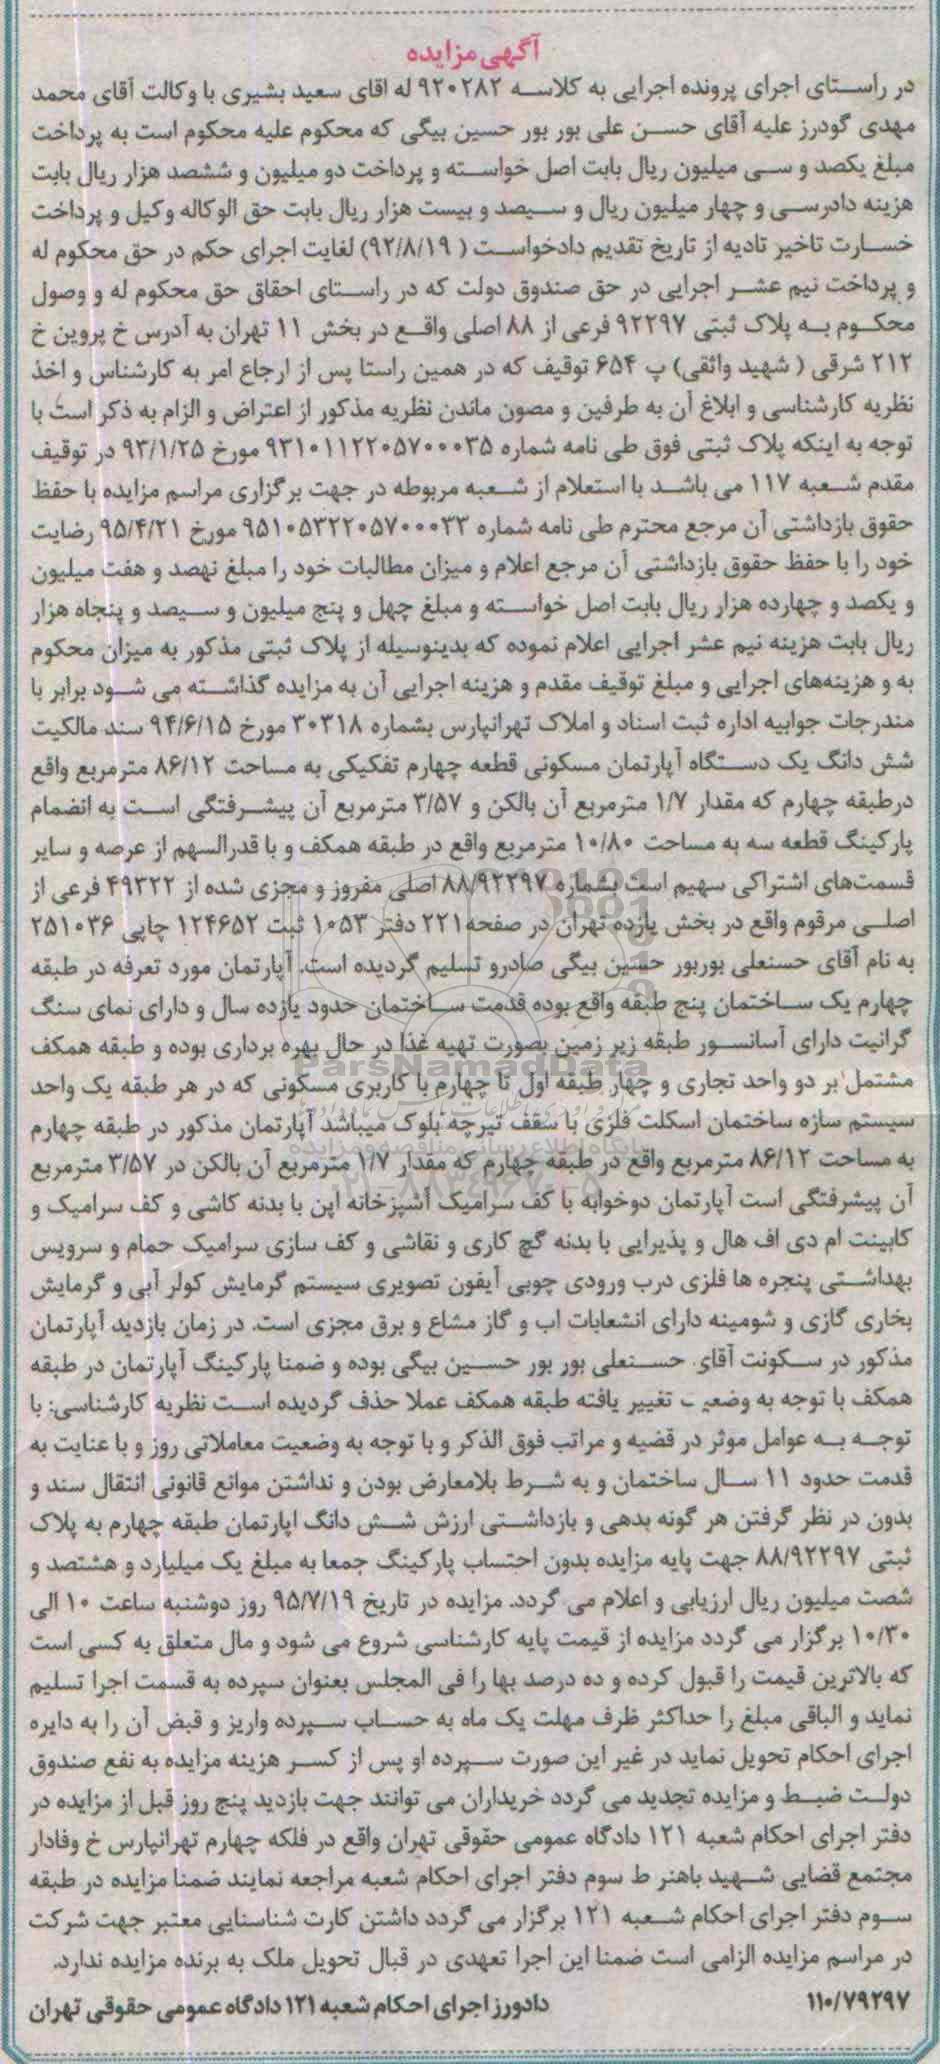 آگهی مزایده
در راستای اجرای پرونده اجرایی به کلاسه ۹۲۰۲۸۲ له اقای سعید بشیری با وکالت آقای محمد
مهدی گودرز علیه آقای حسن علی بور بور حسین بیگی که محکوم علیه محکوم است به پرداخت
مبلغ یکصد و سی میلیون ریال بابت اصل خواسته و پرداخت دو میلیون و ششصد هزار ریال بابت
هزینه دادرسی و چهار میلیون ریال و سیصد و بیست هزار ریال بابت حق الوکاله وکیل و پرداخت
خسارت تاخیر تادیه از تاریخ تقدیم دادخواست ( ۹۲/۸/۱۹) لغایت اجرای حکم در حق محکوم له
و پرداخت نیم عشر اجرایی در حق صندوق دولت که در راستای احقاق حق محکوم له و وصول
محکوم به پلاک ثبتی ۹۲۲۹۷ فرعی از ۸۸ اصلی واقع در بخش ۱۱ تهران به آدرس خ پروین خ
۲۱۲ شرقی ( شهید واثقی) پ ۶۵۴ توقیف که در همین راستا پس از ارجاع امر به کارشناس و اخذ
نظریه کارشناسی و ابلاغ آن به طرفین و مصون ماندن نظریه مذکور از اعتراض و الزام به ذکر است با
توجه به اینکه پلاک ثبتی فوق طی نامه شماره ۹۳۱۰۱۱۲۲۰۵۷۰۰۰۳۵ مورخ ۹۳/۱/۲۵ در توقیف
مقدم شعبه ۱۱۷ می باشد با استعلام از شعبه مربوطه در جهت برگزاری مراسم مزایده با حفظ
حقوق بازداشتی آن مرجع محترم طی نامه شماره ۹۵۱۰۵۳۲۲۰۵۷۰۰۰۳۳ مورخ ۹۵/۴/۲۱ رضایت
خود را با حفظ حقوق بازداشتی آن مرجع اعلام و میزان مطالبات خود را مبلغ نهصد و هفت میلیون
و یکصد و چهارده هزار ریال بابت اصل خواسته و مبلغ چهل و پنج میلیون و سیصد و پنجاه هزار
ریال بابت هزینه نیم عشر اجرایی اعلام نموده که بدینوسیله از پلاک ثبتی مذکور به میزان محکوم
به و هزینه‌های اجرایی و مبلغ توقیف مقدم و هزینه اجرایی آن به مزایده گذاشته می شود برابر با
مندرجات جوابیه اداره ثبت اسناد و املاک تهرانپارس بشماره ۳۰۳۱۸ مورخ ۹۴/۶/۱۵ سند مالکیت
شش دانگ یک دستگاه آپارتمان مسکونی قطعه چهارم تفکیکی به مساحت ۸۶/۱۲ مترمربع واقع
درطبقه چهارم که مقدار ۱/۷ مترمربع آن بالکن و ۳/۵۷ مترمربع آن پیشرفتگی است به انضمام
پارکینگ قطعه سه به مساحت ۱۰/۸۰ مترمربع واقع در طبقه همکف و با قدرالسهم از عرصه و سایر
قسمت‌های اشتراکی سهیم است بشماره ۸۸/۹۲۲۹۷ اصلی مفروز و مجزی شده از ۴۹۳۲۲ فرعی از
اصلی مرقوم واقع در بخش یازده تهران در صفحه۲۲۱ دفتر ۱۰۵۳ ثبت ۱۲۴۶۵۲ چاپی ۲۵۱۰۳۶
به نام آقای حسنعلی بوربور حسین بیگی صادرو تسلیم گردیده است. آپارتمان مورد تعرفه در طبقه
چهارم یک ساختمان پنج طبقه واقع بوده قدمت ساختمان حدود یازده سال و دارای نمای سنگ
گرانیت دارای آسانسور طبقه زیر زمین بصورت تهیه غذا در حال بهره برداری بوده و طبقه همکف
مشتمل بر دو واحد تجاری و چهار طبقه اول تا چهارم با کاربری مسکونی که در هر طبقه یک واحد
سیستم سازه ساختمان اسکلت فلزی با سقف تیرچه بلوک میباشد آپارتمان مذکور در طبقه چهارم
به مساحت ۸۶/۱۲ مترمربع واقع در طبقه چهارم که مقدار ۱/۷ مترمربع آن بالکن در ۳/۵۷ مترمربع
آن پیشرفتگی است آپارتمان دوخوابه با کف سرامیک آشپزخانه اپن با بدنه کاشی و کف سرامیک و
کابینت ام دی اف هال و پذیرایی با بدنه گچ کاری و نقاشی و کف سازی سرامیک حمام و سرویس
بهداشتی پنجره ها فلزی درب ورودی چوبی آیفون تصویری سیستم گرمایش کولر آبی و گرمایش
بخاری گازی و شومینه دارای انشعابات اب و گاز مشاع و برق مجزی است. در زمان بازدید آپارتمان
مذکور در سکونت آقای حسنعلی بور بور حسین بیگی بوده و ضمنا پارکینگ آپارتمان در طبقه
همکف با توجه به وضعیت تغییر یافته طبقه همکف عملا حذف گردیده است نظریه کارشناسی: با
توجه به عوامل موثر در قضیه و مراتب فوق الذکر و با توجه به وضعیت معاملاتی روز و با عنایت به
قدمت حدود ۱۱ سال ساختمان و به شرط بلامعارض بودن و نداشتن موانع قانونی انتقال سند و
بدون در نظر گرفتن هر گونه بدهی و بازداشتی ارزش شش دانگ اپارتمان طبقه چهارم به پلاک
ثبتی ۸۸/۹۲۲۹۷ جهت پایه مزایده بدون احتساب پارکینگ جمعا به مبلغ یک میلیارد و هشتصد و
شصت میلیون ریال ارزیابی و اعلام می گردد. مزایده در تاریخ ۹۵/۷/۱۹ روز دوشنبه ساعت ۱۰ الی
۱۰/۳۰ برگزار می گردد مزایده از قیمت پایه کارشناسی شروع می شود و مال متعلق به کسی است
که بالاترین قیمت را قبول کرده و ده درصد بها را فی المجلس بعنوان سپرده به قسمت اجرا تسلیم
نماید و الباقی مبلغ را حداکثر ظرف مهلت یک ماه به حساب سپرده واریز و قبض آن را به دایره
اجرای احکام تحویل نماید در غیر این صورت سپرده او پس از کسر هزینه مزایده به نفع صندوق
دولت ضبط و مزایده تجدید می گردد خریداران می توانند جهت بازدید پنج روز قبل از مزایده در
دفتر اجرای احکام شعبه ۱۲۱ دادگاه عمومی حقوقی تهران واقع در فلکه چهارم تهرانپارس خ وفادار
مجتمع قضایی شهید باهنر ط سوم دفتر اجرای احکام شعبه مراجعه نمایند ضمنا مزایده در طبقه
سوم دفتر اجرای احکام شعبه ۱۲۱ برگزار می گردد داشتن کارت شناسنایی معتبر جهت شرکت
در مراسم مزایده الزامی است ضمنا این اجرا تعهدی در قبال تحویل ملک به برنده مزایده ندارد.
۱۱۰/۷۹۲۹۷ دادورز اجرای احکام شعبه ۱۲۱ دادگاه عمومی حقوقی تهران
ParsNamadData
پایگاه اطلاع رسانی مناقصه و مزایده
۰۲۱-۸۸۳۴۹۶۷۰-۵